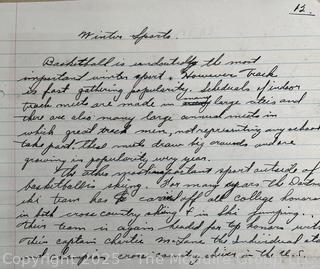 12.
Winter Sports.
Basketball is undoubtedly the most
important winter sport. However track
is fast gathering popularity. Scheduals of indoor
track meets are made in many large cities and
there are also many large annual meets in
which great track men, not representing any school
take part. These meets draw big crowds and are
growing in popularity every year.
The other most important sport outside of
basketball is skiing. For many years the Dartmouth
ski team has carried off all college honors
in both cross country skiing & in ski jumping.
Their team is again headed for top honors with
their captain Charlie Mc Lane the individual
cross country skier in the U.S.
Copyright 2025
PhotographyMemorabilia.Com